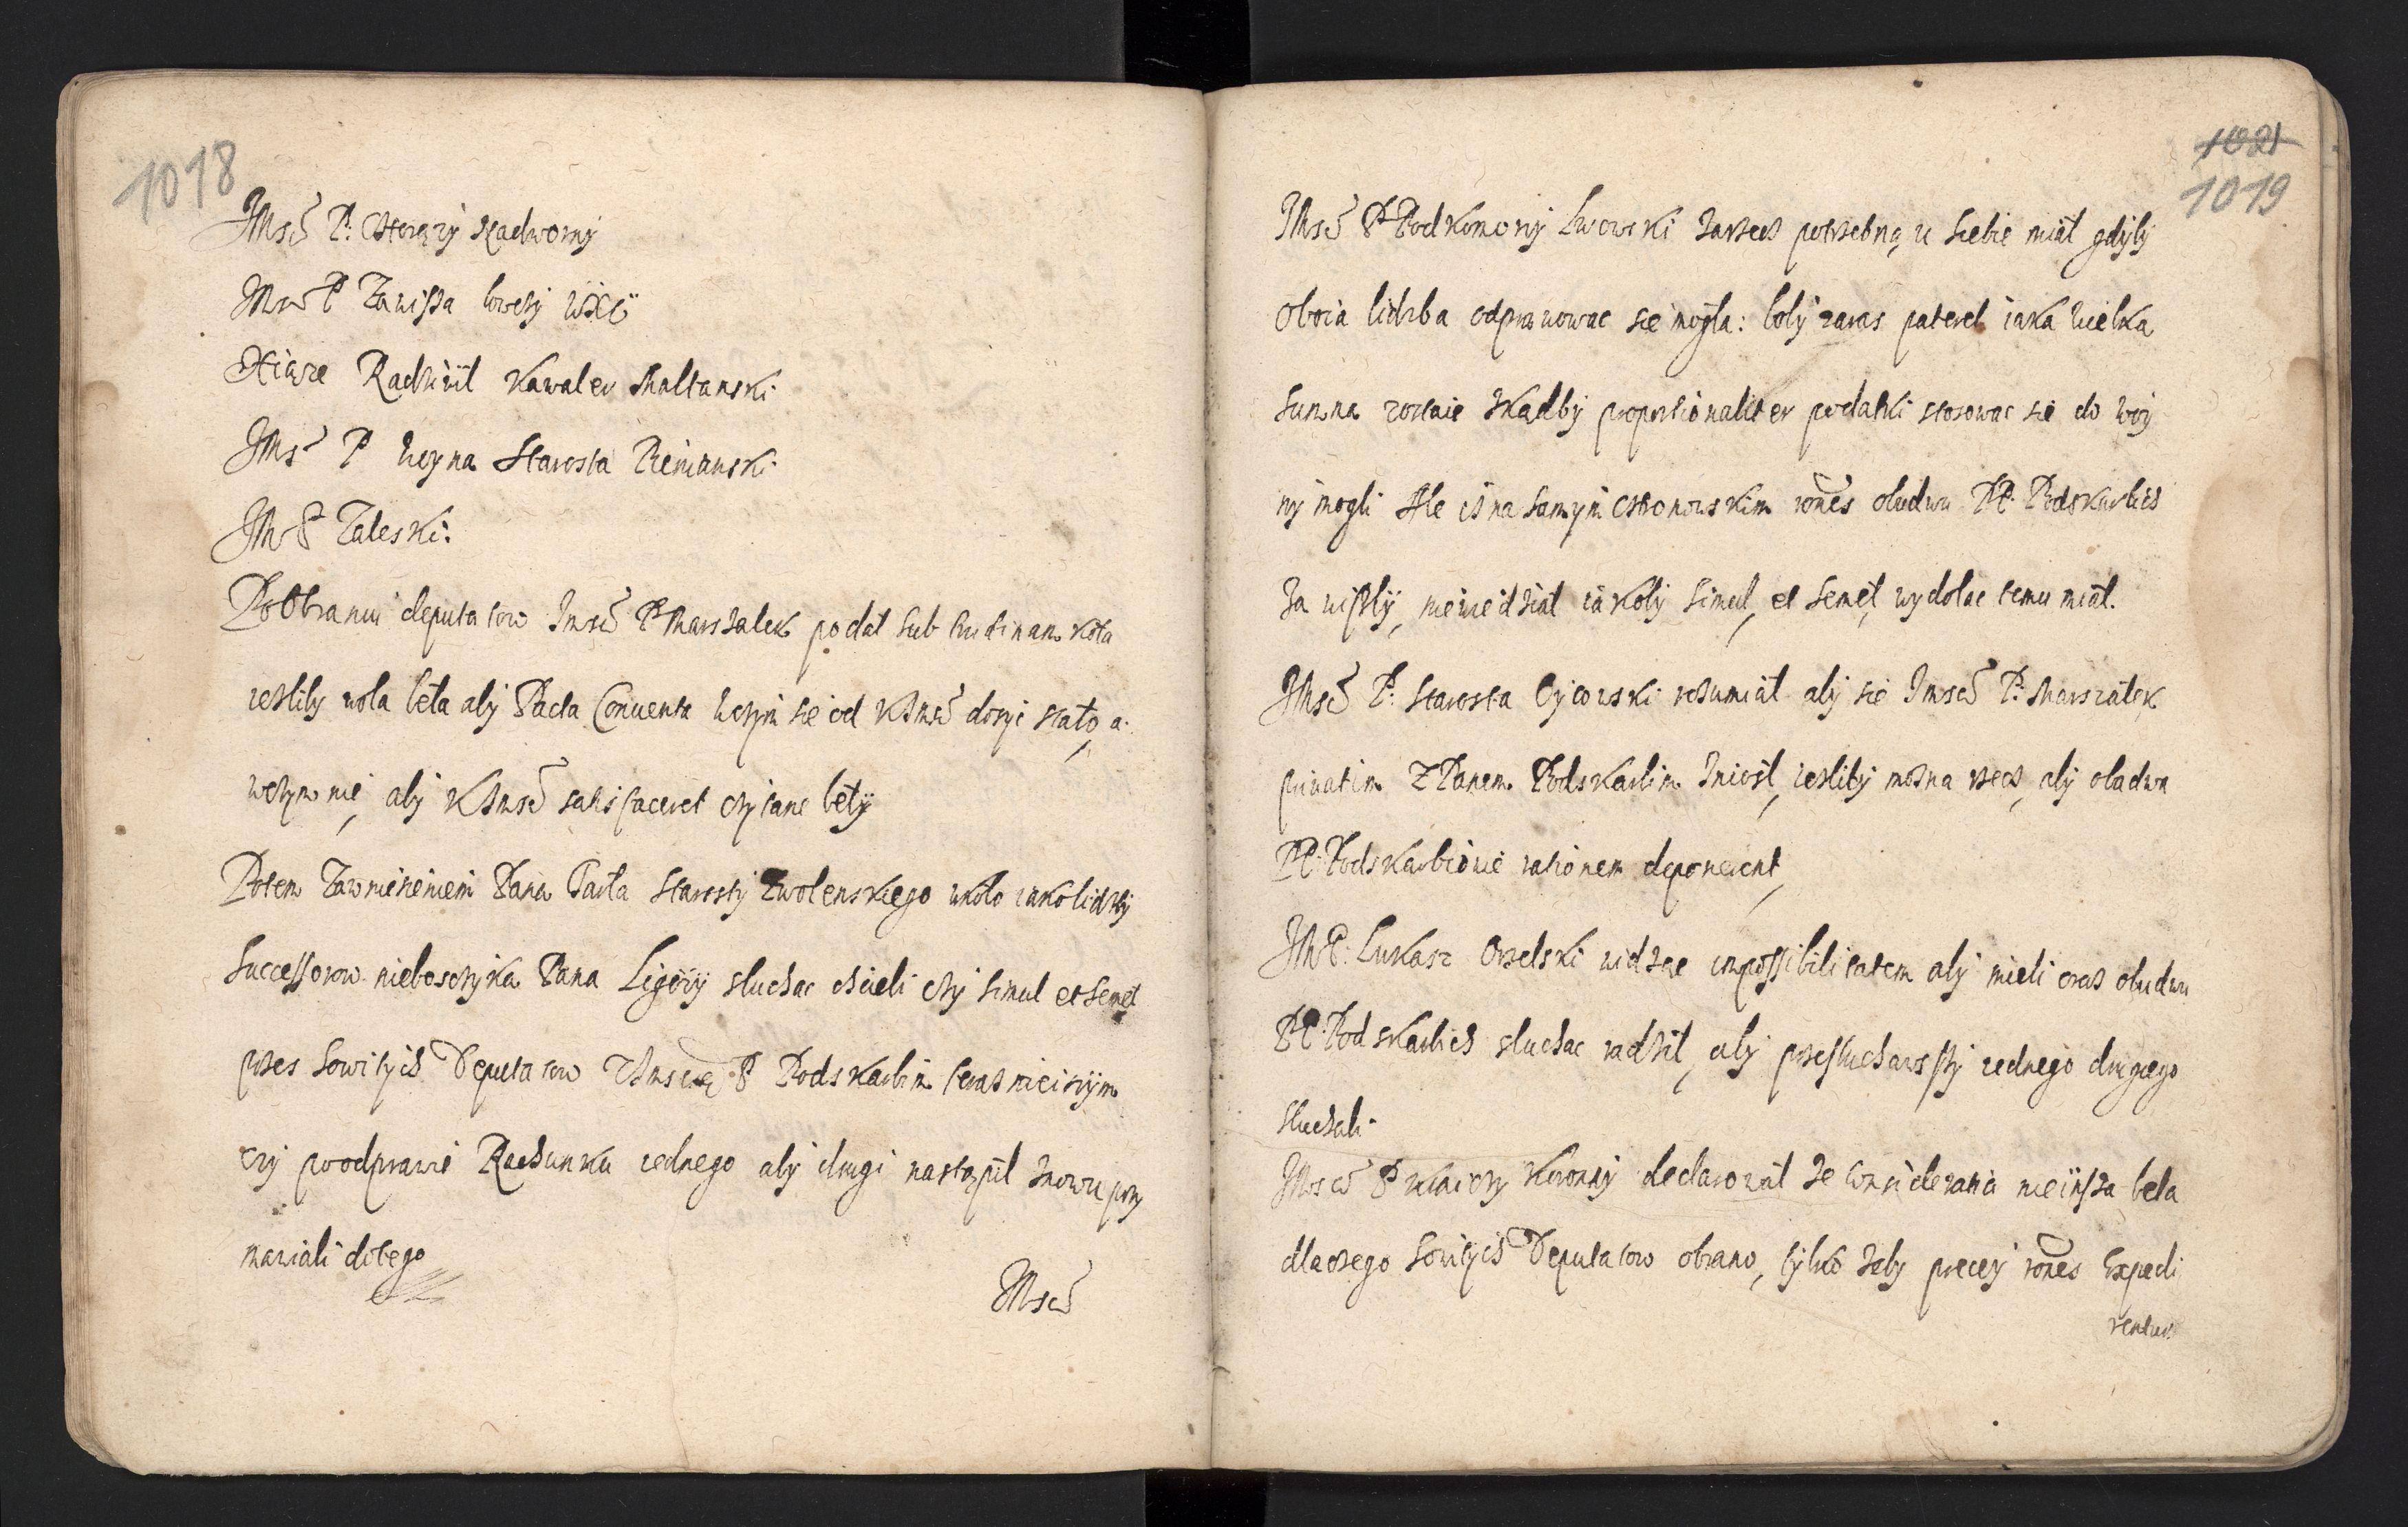 1018
JMsć P: Chorąży Nadworny
JMsć P Zawisza łowczy WXL
Xiąże Radziwił Kawaler Maltanski
JMsć P Woyna Starosta Pieniański
JM P Zaleski:
Po Obraniu deputatow Jmsć P Marszałek podał sub trutinam koła
iesliby wola beła aby Pacta Conuenta wczym sie od KJmsć dosyć stało, a
wczym nie, aby KJmsć satisfaceret czytane beły
Potem zawniesieniem Pana Parła Starosty Zwolenskiego wkoło iako lidzby
Successorow nieboszczyka Pana Ligęży słuchac chcieli czy simul et semel
przes sowitych Deputatow ZJmscią P Podskarbim teraznieiszym
czy po odprawie Rachunku iednego aby drugi nastąpił znowu przy
mawiali do tego
JMsć
1021
1019
JMsć P Podkomorzy Lwowski zarzecz potrzebną u siebie miał gdyby
oboia lidzba odprawowac sie mogła: boby zaras pateret iaka wielka
summa zostaie zkądby proportionaliter podatki stosowac sie do woy
ny mogli Ale isz na samym Chronowskim rones obudwu PP. Podskarbich
zawisły, niewiedział iakoby simul, et semel, wydołac temu miał.
JMsć P: Starosta Oycowski rozumiał aby sie Jmsć P: Marszałek
priuatim Z Panem Podskarbim zniosł, iesliby można rzecz, aby obadwa
PP. Podskarbiowie rationem deponerent,
JM P: Lukasz Orzelski widząc impossibilitatem aby mieli oraz obudwu
PP. Podskarbich słuchac radził, aby przesłuchawszy iednego drugiego
słuchali.
JMscć P Kraiczy Koronny declarował że consideratia nieinsza beła
dlaczego sowitych Deputatow obrano, tylko żeby pręcey rones Expedi
rentur.